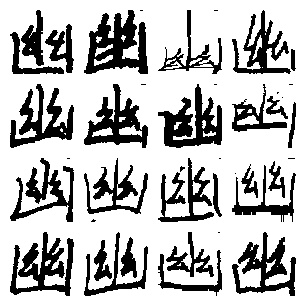 幽幽幽幽
幽幽幽幽
幽幽幽幽
幽幽幽幽